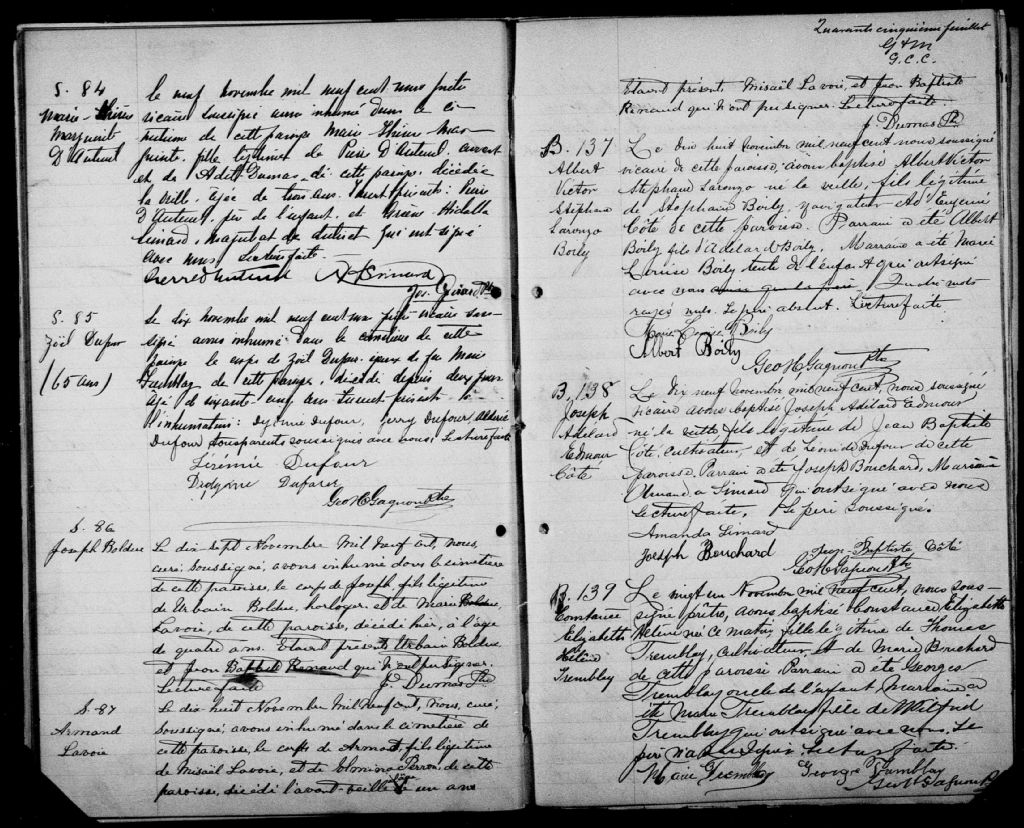 S. 84
Marie Thérèse
Marguerite
D'Auteuil
Le neuf novembre mil neuf cent nous prêtre
vicaire soussigné avons inhumé dans le ci
metière de cette paroisse Marie Thérèse Mar
guerite, fille légitime de Pierre D'Auteuil, avocat
et de Adèle Dumas, de cette paroisse, décédée
la veille, âgée de trois ans. Etaient présents: Pierre
D'Auteuil, père de l'enfant, et
Simard, magistrat de district qui ont signé
avec nous. Lecture faite.
Pierre d'Auteuil Simard
Jos. Girard Ptre
S. 85
Zoël Dufour
(65 ans)
Le dix novembre mil neuf cent nous prêtre vicaire sous-
signé avons inhumé dans le cimetière de cette
paroisse le corps de Zoël Dufour époux de feu Marie
Tremblay de cette paroisse, décédé depuis deux jours
âgé de soixante cinq ans étaient présents à
l'inhumation: Didyme Dufour, Jerry Dufour, Aldéric
Dufour tous parents soussignés avec nous. Lecture faite
Jérémie Dufour
Didyme Dufour
Geo H Gagnon Ptre
S. 86
Joseph Boldue
Le dix-sept Novembre Mil neuf cent, nous,
curé soussigné, avons inhumé dans le cimetière
de cette paroisse, le corps de Joseph, fils légitime
de Urbain Boldue, horloger, et de Marie Boldue,
Lavoie, de cette paroisse, décédé hier, à l'âge
de quatre ans. Etaient présents Urbain Boldue
et Jean Baptiste Renaud qui n'ont pu signer.
Lecture faite J. Dumas Ptre
S. 87
Armand
Lavoie
Le dix huit Novembre Mil neuf cent, nous, curé,
soussigné, avons inhumé dans le cimetière de
cette paroisse, le corps de Armand, fils légitime
de Misaël Lavoie, et de Elmina Perron, de cette
paroisse, décédé l'avant-veille à l'âge de un an
Quarante cinquième feuillet
G & M
G.C.C.
Etaient présents, Misaël Lavoie, et Jean Baptiste
Renaud qui n'ont pu signer. Lecture faite
J. Dumas Ptre
B. 137
Albert
Victor
Stéphane
Laronzo
Boily
Le dix huit novembre mil neuf cent nous soussigné
vicaire de cette paroisse, avons baptisé Albert Victor
Stéphane Laronzo né la veille, fils légitime
de Stéphane Boily, navigateur et d'Eugénie
Côté de cette paroisse. Parrain a été Albert
Boily fils d'Adélard Boily, Marraine a été Marie
Louise Boily tante de l'enfant qui ont signé
avec nous ainsi que le père. Quatre mots
rayés nuls. Le père absent. Lecture faite
Marie Louise Boily
Albert Boily
Geo H Gagnon Ptre
B. 138
Joseph
Adélard
Edmour
Côté
Le dix neuf novembre mil neuf cent, nous soussigné
vicaire avons baptisé Joseph Adélard Edmour
né la veille fils légitime de Jean Baptiste
Côté, cultivateur, et de Léonide Dufour de cette
paroisse. Parrain a été Joseph Bouchard, Marraine
Amanda Simard qui ont signé avec nous
Lecture faite. Le père soussigné.
Amanda Simard
Joseph Bouchard Jean-Baptiste Côté
Geo H Gagnon Ptre
B. 139
Constance
Elizabeth
Hélène
Tremblay
Le vingt un Novembre mil neuf cent, nous sous-
signé prêtre, avons baptisé Constance Elizabeth
Hélène née ce matin fille légitime de Thomas
Tremblay, cultivateur, et de Marie Bouchard
de cette paroisse Parrain a été Georges
Tremblay oncle de l'enfant Marraine a
été Marie Tremblay fille de Wilfrid
Tremblay qui ont signé avec nous. Le
père n'a su signer. Lecture faite.
Marie Tremblay Georges Tremblay
Geo H Gagnon Ptre